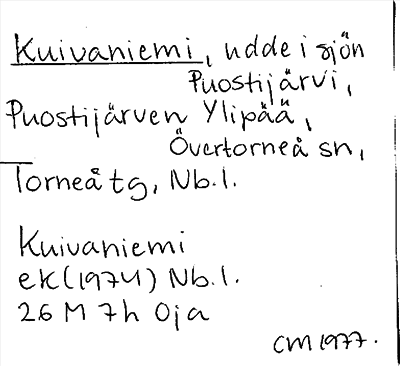 Kuivaniemi, udde i sjön
Puostijärvi,
Puostijärven Ylipää,
Övertorneå sn,
Torneå tg, Nb.l.
Kuivaniemi
ek (1974) Nb.l.
26 M 7h Oja
CM 1977.